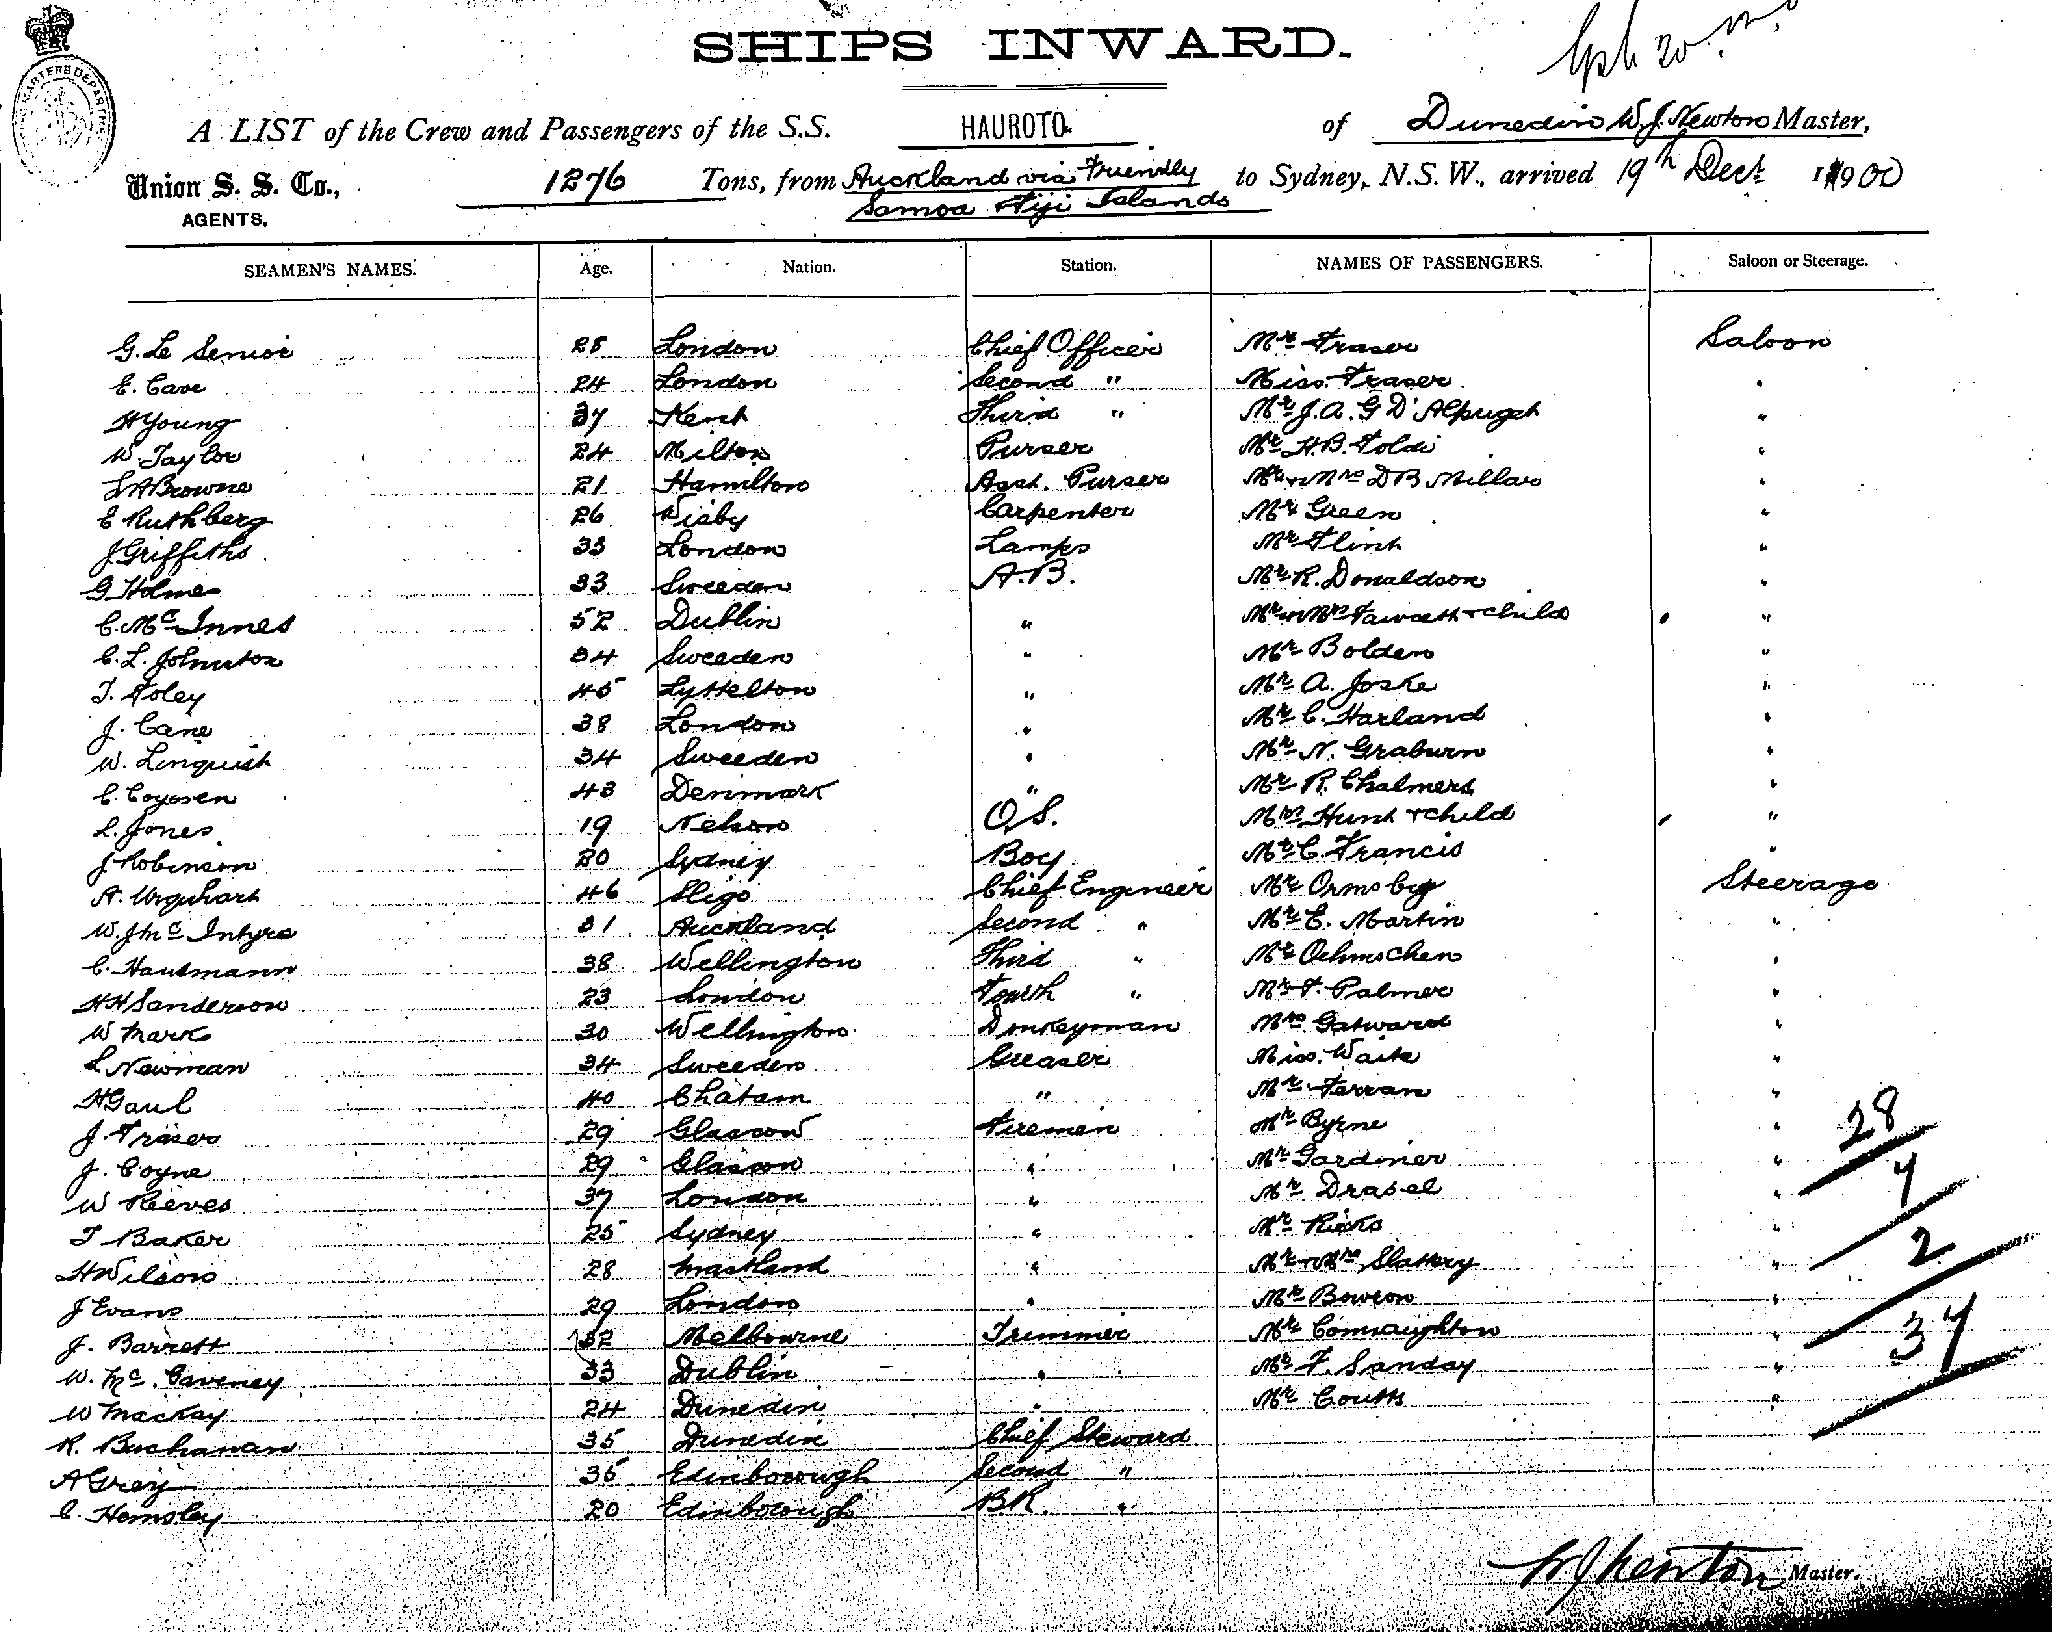 SHIPS INWARD.
A LIST of the Crew and Passengers of the S.S. HAUROTO. of Dunedin W.J. Newton Master,
Union S. S. Co., 1276 Tons, from Auckland via Friendly to Sydney, N.S.W., arrived 19th Dect 1900
AGENTS. Samoa Fiji Islands
SEAMEN'S NAMES. Age. Nation. Station. NAMES OF PASSENGERS. Saloon or Steerage.
G. Le Senior 28 London Chief Officer Mr Fraser Saloon
E. Cave 24 London Second " Miss. Fraser "
H Young 37 Kent Third " Mr J.A.G D'Alpuget "
W. Taylor 24 Milton Purser Mr H.B. Toldi "
L A Browne 21 Hamilton Asst. Purser Mr + Mrs D B Millar "
E Ruthberg 26 Visby Carpenter Mr Green "
J Griffiths 33 London Lamps Mr Flint "
G Holme 33 Sweeden A.B. Mr R. Donaldson "
C. Mc Innes 52 Dublin " Mr + Mrs Fawcett + child "
C. L. Johnston 34 Sweeden " Mr Bolden "
T. Foley 45 Lyttelton " Mr A. Joske "
J. Cane 38 London " Mr C. Harland "
W. Linquist 34 Sweeden " Mr N. Graburn "
C. 43 Denmark " Mr R. Chalmers "
L. Jones 19 Nelson O.S. Mrs Hunt + child "
J Robinson 20 Sydney Boy Mr C Francis "
A. Urquhart 46 Sligo Chief Engineer Mr Ormsby Steerage
W. J Mc Intyre 31 Auckland Second " Mr E. Martin "
C. Hautmann 38 Wellington Third " Mr Oehmschen "
H H Sanderson 23 London Fourth " Mr F. Palmer "
W Mark 30 Wellington Donkeyman Mrs Gatward "
L Newman 34 Sweeden Greaser Miss. Waite "
H Gaul 40 Chatam " Mr Ferran "
J. Fraser 29 Glasgow Firemen Mr Byrne "
J. Coyne 29 Glasgow " Mr Gardiner "
W Reeves 37 London " Mr Drasel "
T Baker 25 Sydney " Mr Ricks "
H Wilson 28 " Mr + Mrs Slattery "
J Evans 29 London " Mr Bowron "
J. Barrett 32 Melbourne Trimmer Mr Connaughton "
W. Mc. Gaveney 33 Dublin " Mr F. Sanday "
W Mackay 24 Dunedin " Mr Coutts "
R. Buchanan 35 Dunedin Chief Steward
A Grey 35 Edinborough Second "
C. Hemsley 20 Edinborough B.R. "
28
7
2
37
W J Newton Master.